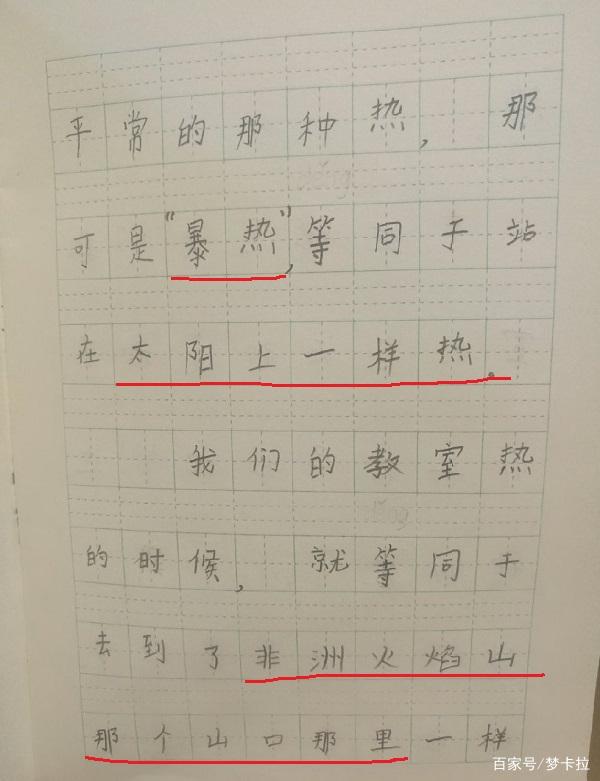 平常的那种热，那
可是“暴热”，等同于站
在太阳上一样热。
我们的教室热
的时候，就等同于
去到了非洲火焰山
那个山口那里一样
百家号/梦卡拉